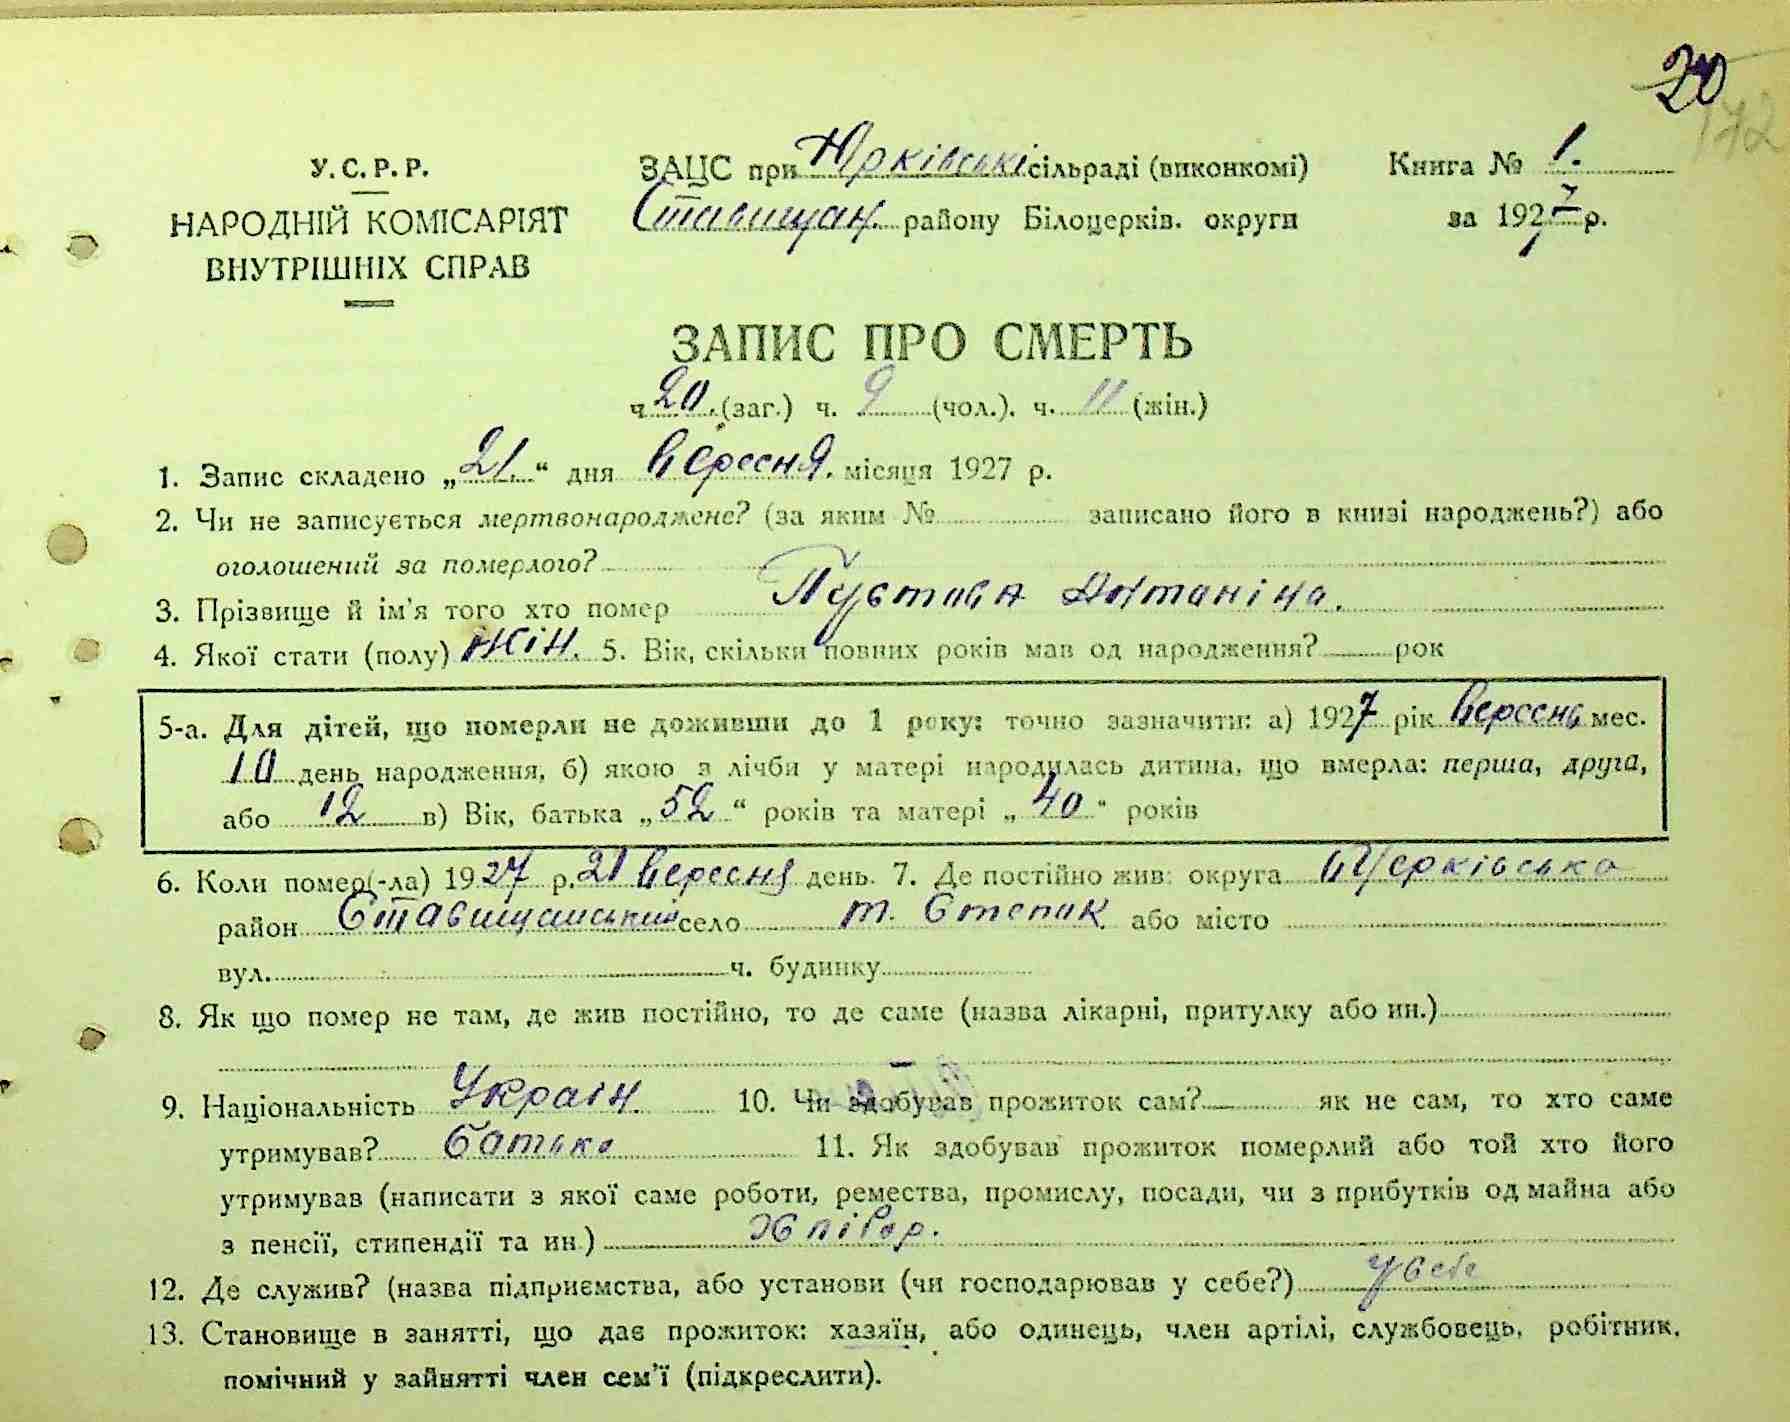 20
172
У.С.Р.Р.
НАРОДНІЙ КОМІСАРІЯТ
ВНУТРІШНІХ СПРАВ
ЗАЦС при Юрківські сільраді (виконкомі)
Ставищан. району Білоцерків. округи
Книга № 1.
за 1927 р.
ЗАПИС ПРО СМЕРТЬ
ч 20. (заг.) ч. 9 (чол.). ч. 11 (жін.)
1. Запис складено „21.“ дня вересня. місяця 1927 р.
2. Чи не записується мертвонароджене? (за яким № записано його в книзі народжень?) або
оголошений за померлого?
3. Прізвище й ім'я того хто помер Пустова
4. Якої стати (полу) жін. 5. Вік, скільки повних років мав од народження? рок
5-а. Для дітей, що померли не доживши до 1 року: точно зазначити: а) 1927 рік вересень мес.
10 день народження, б) якою з лічби у матері народилась дитина, що вмерла: перша, друга,
або 12 в) Вік, батька „52“ років та матері „40“ років
6. Коли помер(-ла) 1927 р. 21 вересня день. 7. Де постійно жив: округа
район Ставищанський село т. Степок або місто
вул. ч. будинку
8. Як що помер не там, де жив постійно, то де саме (назва лікарні, притулку або ин.)
9. Національність Україн. 10. Чи здобував прожиток сам? — як не сам, то хто саме
утримував? батько 11. Як здобував прожиток померлий або той хто його
утримував (написати з якої саме роботи, ремества, промислу, посади, чи з прибутків од майна або
з пенсії, стипендії та ин.) Хлібор.
12. Де служив? (назва підприємства, або установи (чи господарював у себе?) у себе
13. Становище в занятті, що дає прожиток: хазяїн, або одинець, член артілі, службовець, робітник,
помічний у зайнятті член сем'ї (підкреслити).